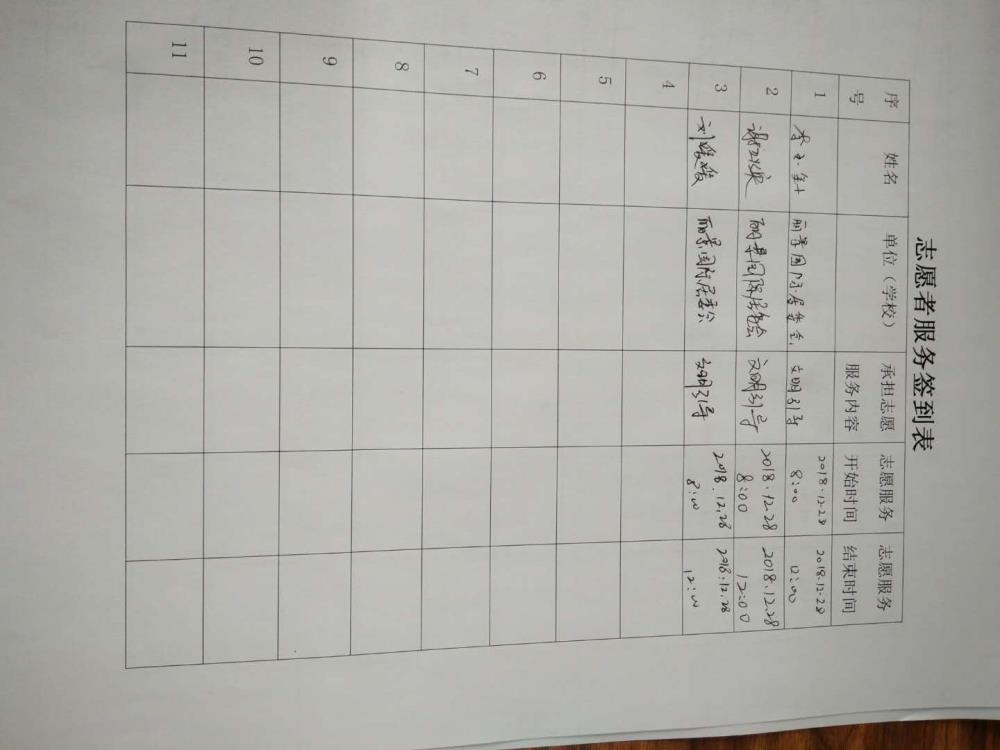 志愿者服务签到表
序号 姓名 单位（学校） 承担志愿服务内容 志愿服务开始时间 志愿服务结束时间
1 丽景国际居委会 文明引导 2018.12.28 8:00 2018.12.28 12:00
2 丽景国际居委会 文明引导 2018.12.28 8:00 2018.12.28 12:00
3 刘媛媛 丽景国际居委会 文明引导 2018.12.28 8:00 2018.12.28 12:00
4
5
6
7
8
9
10
11